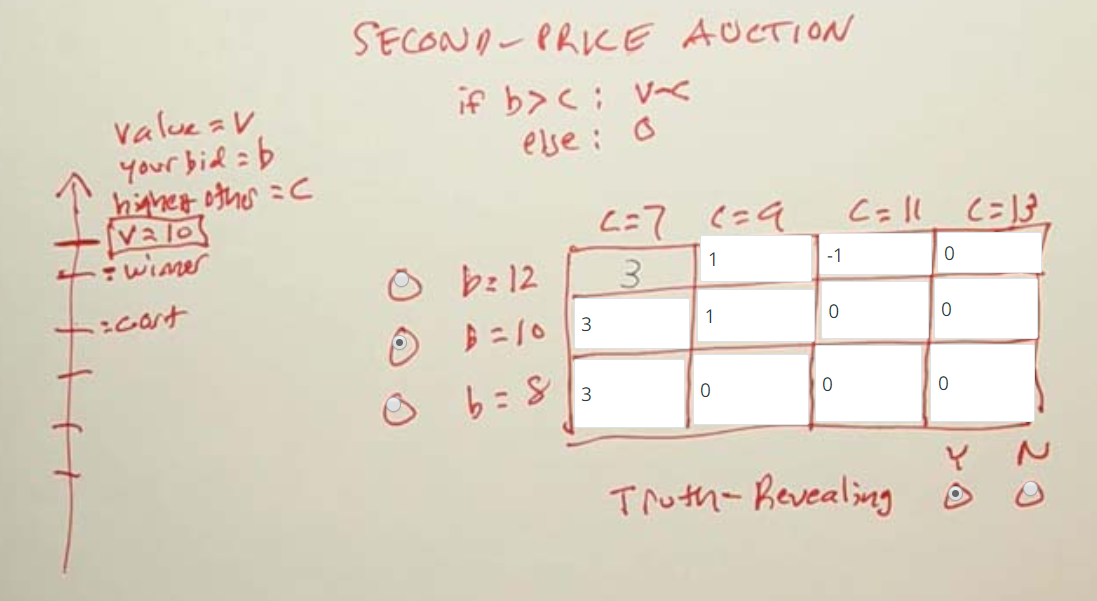 SECOND-PRICE AUCTION
if b>c: v-c
else: 0
value = v
your bid = b
highest other = c
v=10
= winner
= cost
c=7 c=9 c=11 c=13
b=12 3 1 -1 0
b=10 3 1 0 0
b=8 3 0 0 0
Y N
Truth-Revealing